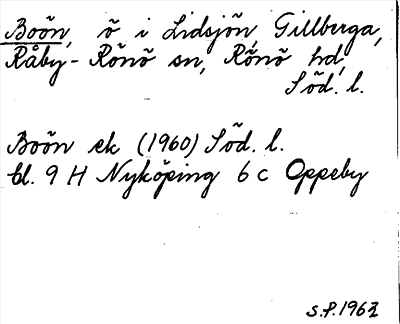 Boön, ö i Lidsjön, Gillberga,
Råby-Rönö sn, Rönö hd,
Söd. l.
Boön ek (1960) Söd. l.
bl. 9 H Nyköping 6 c Oppeby
S.P. 1962